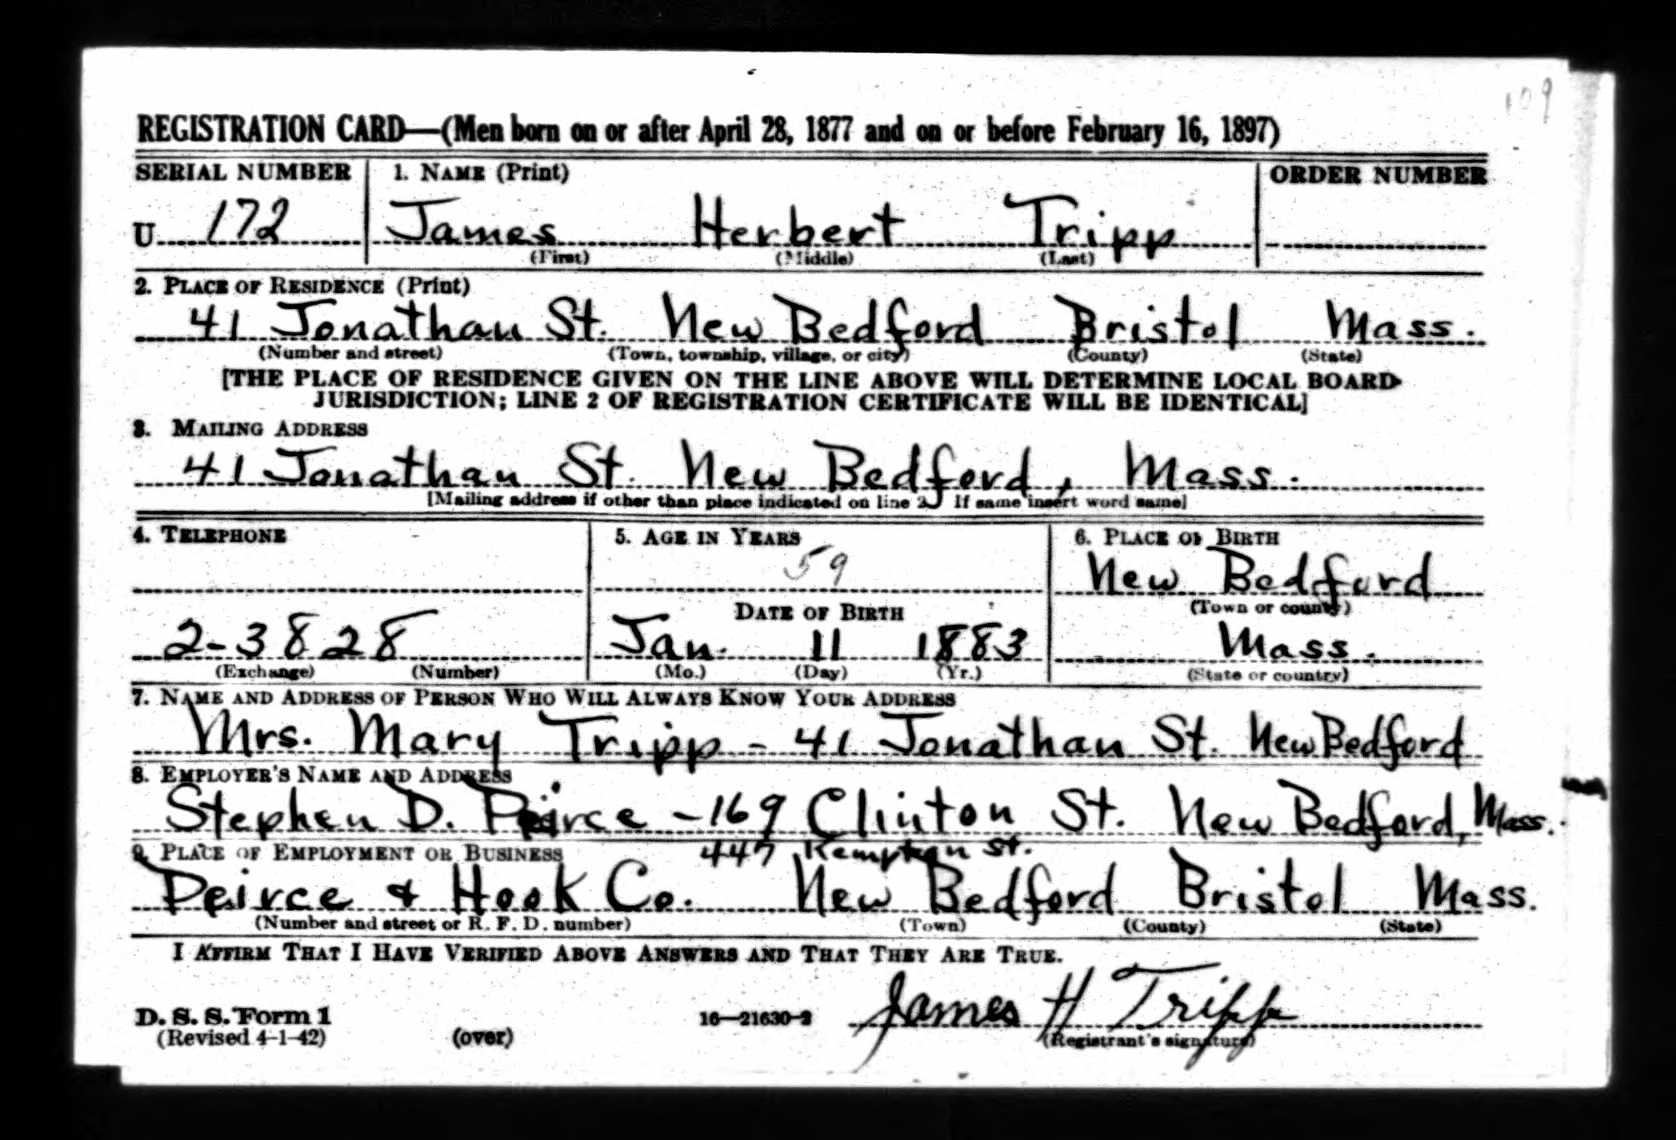 109
REGISTRATION CARD—(Men born on or after April 28, 1877 and on or before February 16, 1897)
SERIAL NUMBER 1. NAME (Print) ORDER NUMBER
U 172 James Herbert Tripp
(First) (Middle) (Last)
2. PLACE OF RESIDENCE (Print)
41 Jonathan St. New Bedford Bristol Mass.
(Number and street) (Town, township, village, or city) (County) (State)
[THE PLACE OF RESIDENCE GIVEN ON THE LINE ABOVE WILL DETERMINE LOCAL BOARD
JURISDICTION; LINE 2 OF REGISTRATION CERTIFICATE WILL BE IDENTICAL]
3. MAILING ADDRESS
41 Jonathan St. New Bedford, Mass.
[Mailing address if other than place indicated on line 2. If same insert word same]
4. TELEPHONE 5. AGE IN YEARS 6. PLACE OF BIRTH
59 New Bedford
DATE OF BIRTH (Town or county)
2-3828 Jan. 11 1883 Mass.
(Exchange) (Number) (Mo.) (Day) (Yr.) (State or country)
7. NAME AND ADDRESS OF PERSON WHO WILL ALWAYS KNOW YOUR ADDRESS
Mrs. Mary Tripp - 41 Jonathan St. New Bedford
8. EMPLOYER'S NAME AND ADDRESS
Stephen D. Peirce - 169 Clinton St. New Bedford, Mass.
9. PLACE OF EMPLOYMENT OR BUSINESS 447 Kempton St.
Peirce & Hook Co. New Bedford Bristol Mass.
(Number and street or R. F. D. number) (Town) (County) (State)
I AFFIRM THAT I HAVE VERIFIED ABOVE ANSWERS AND THAT THEY ARE TRUE.
D. S. S. Form 1 16—21630-2 James H Tripp
(Revised 4-1-42) (over) (Registrant's signature)